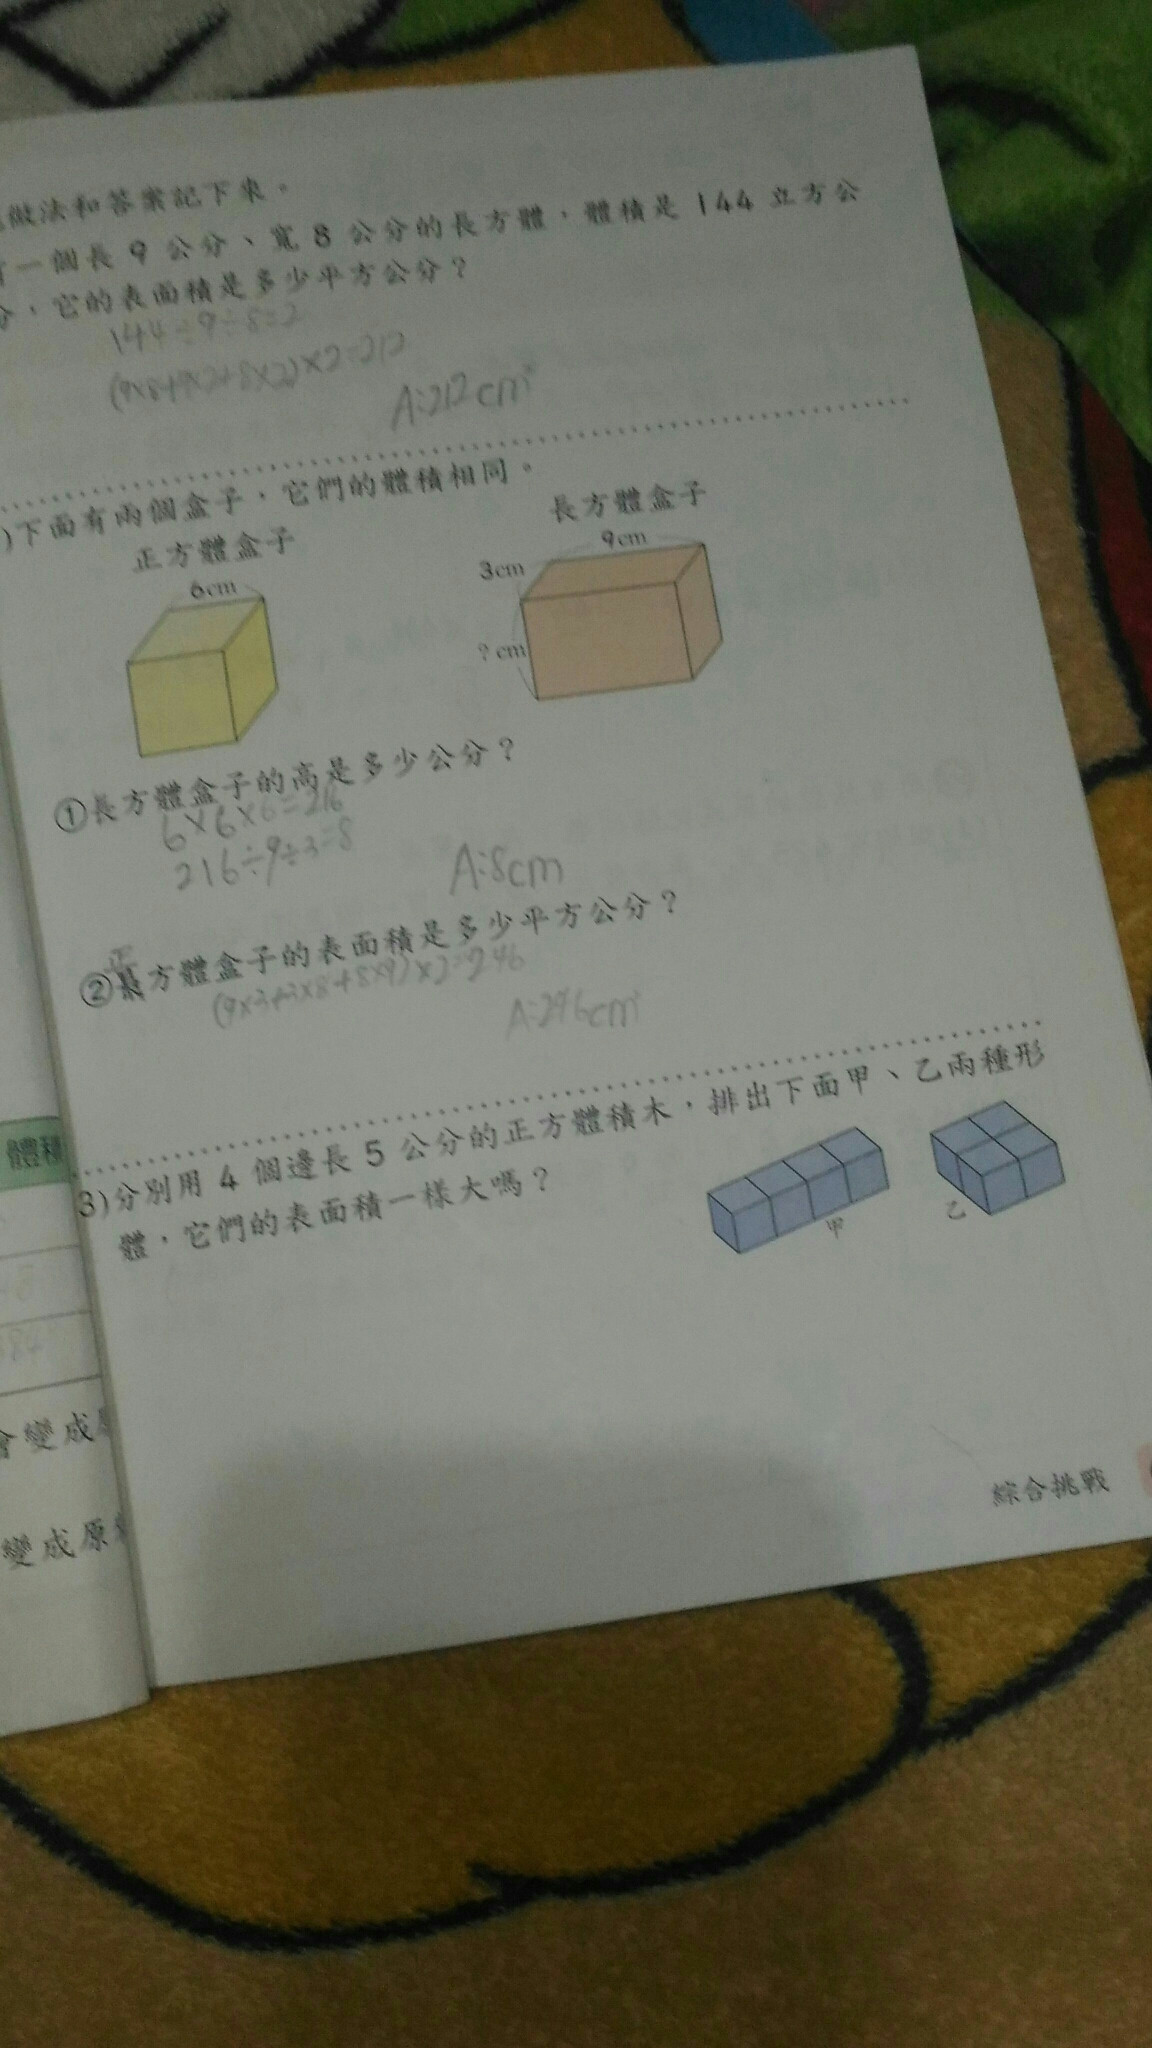 做法和答案記下來。
一個長 9 公分、寬 8 公分的長方體,體積是 144 立方公
分,它的表面積是多少平方公分?
144÷9÷8=2
(9×8+9×2+8×2)×2=212
A:212cm²
)下面有兩個盒子,它們的體積相同。
正方體盒子
長方體盒子
6cm
9cm
3cm
?cm
①長方體盒子的高是多少公分?
6×6×6=216
216÷9÷3=8
A:8cm
正
②長方體盒子的表面積是多少平方公分?
(9×3+3×8+8×9)×2=246
A:246cm²
3)分別用 4 個邊長 5 公分的正方體積木,排出下面甲、乙兩種形
體,它們的表面積一樣大嗎?
甲
乙
體積
84
會變成
變成原
綜合挑戰